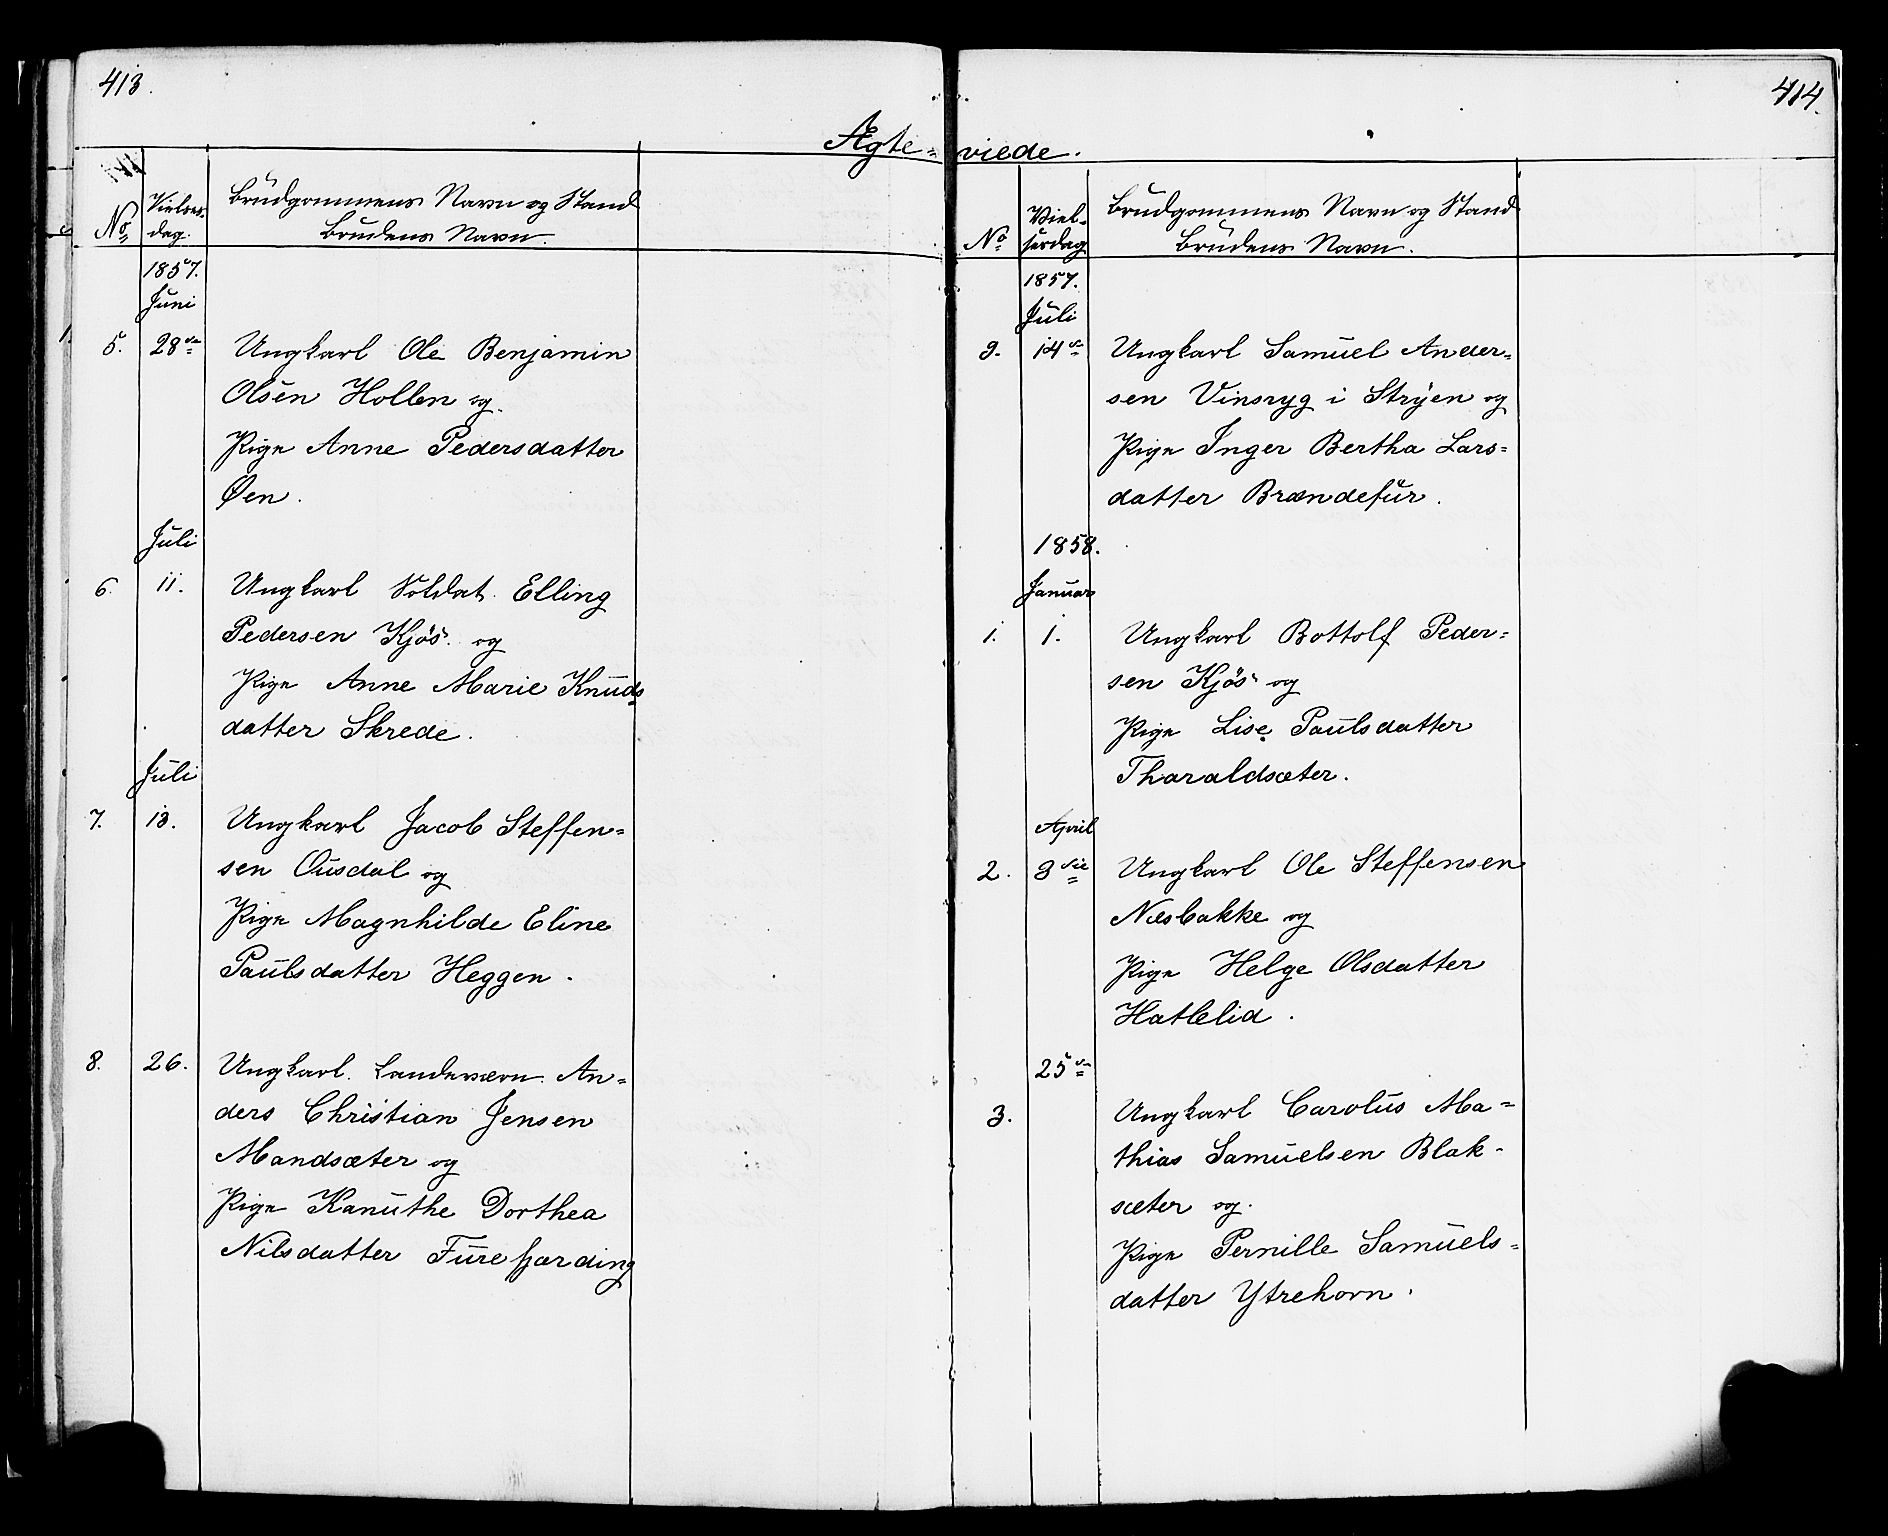 413.
Ægte-
No
Vielses-
dag.
Brudgommens Navn og Stand
Brudens Navn.
1857.
Juni
5. 28de Ungkarl Ole Benjamin
Olsen Hollen og
Pige Anne Pedersdatter
Øen.
Juli
6. 11. Ungkarl Soldat Elling
Pedersen Kjøs og
Pige Anne Marie Knuds
datter Skrede.
Juli
7. 13. Ungkarl Jacob Steffen=
sen Ousdal og
Pige Magnhilde Eline
Paulsdatter Heggen.
8. 26. Ungkarl Landeværn. An=
ders Christian Jensen
Mandsæter og
Pige Kanuthe Dorthea
Nilsdatter Furefjærding
414.
viede.
No
Viel-
sesdag
Brudgommens Navn og Stand
Brudens Navn.
1857.
Juli
9. 14de Ungkarl Samuel Ander=
sen Vinsryg i Stryen og
Pige Inger Bertha Lars=
datter Brændefur.
1858.
Januar
1. 1. Ungkarl Bottolf Peder=
sen Kjøs og
Pige Lise Paulsdatter
Tharaldsæter.
April
2. 3die Ungkarl Ole Steffensen
Næsbakke og
Pige Helge Olsdatter
Hatlelid.
25de
3. Ungkarl Carolus Ma=
thias Samuelsen Blak-
sæter og.
Pige Pernille Samuels=
datter Ytrehorn.